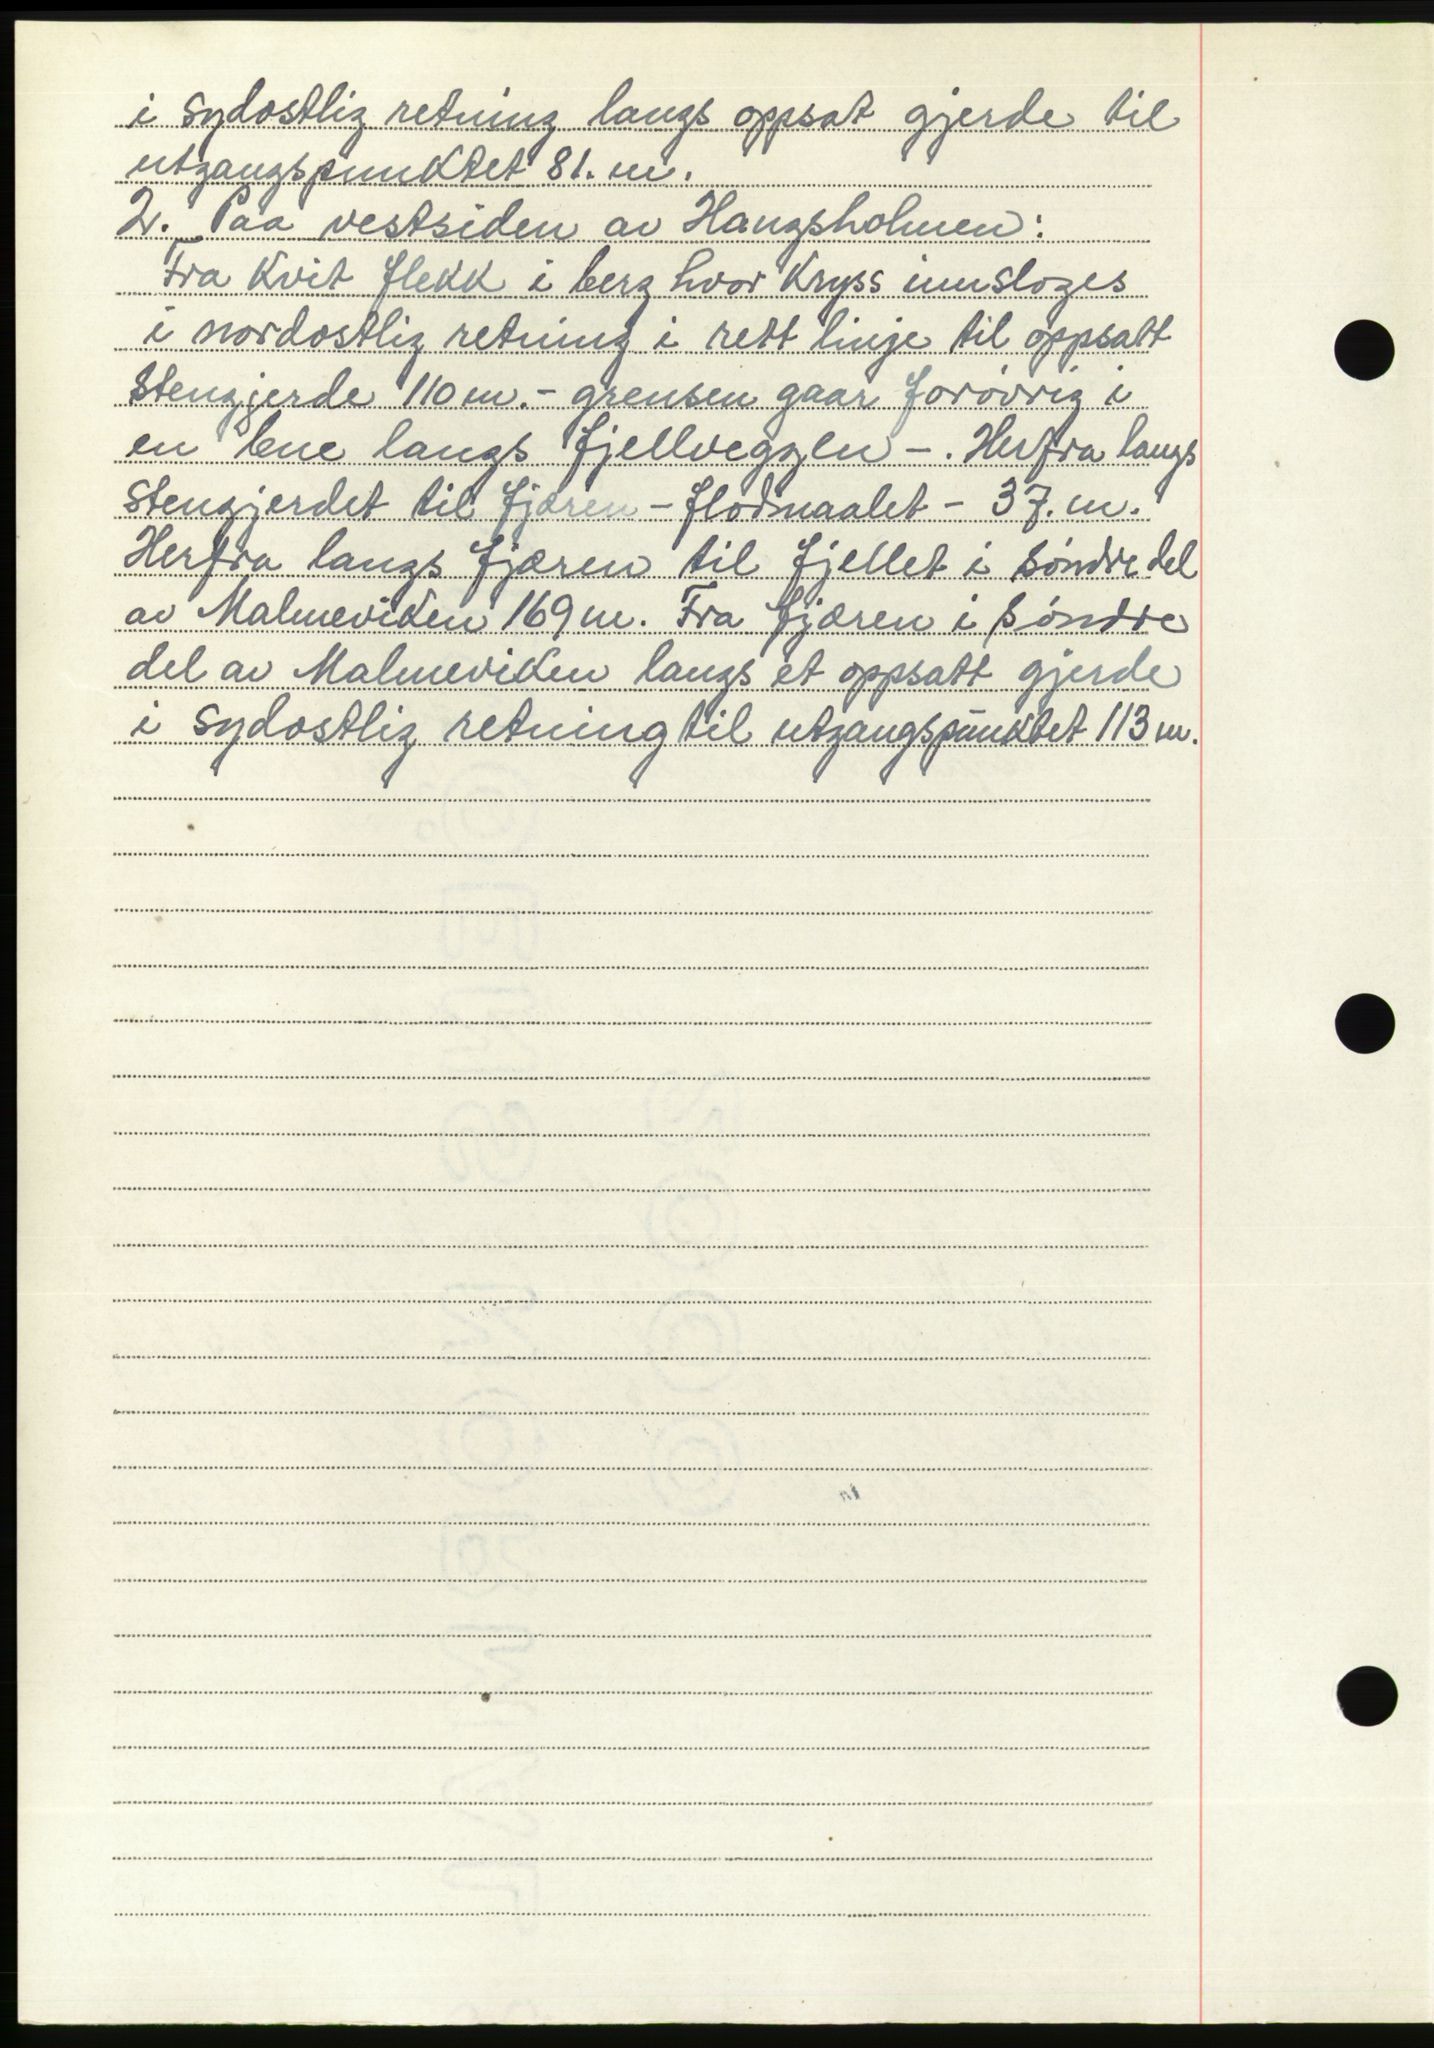 i sydostlig retning langs oppsat gjerde til
utgangspunktet 81. m.
2. Paa vestsiden av Hangsholmen:
Fra Kvit flekk i berg hvor Kryss innsloges
i nordostlig retning i rett linje til oppsatt
stengjerde 110 m. - grensen gaar forøvrig i
en bue langs fjellveggen - . Herfra langs
stengjerdet til fjæren - flodmaalet - 37. m.
Herfra langs fjæren til fjellet i søndre del
av Malmeviken 169 m. Fra fjæren i søndre
del av Malmeviken langs et oppsatt gjerde
i sydostlig retning til utgangspunktet 113 m.